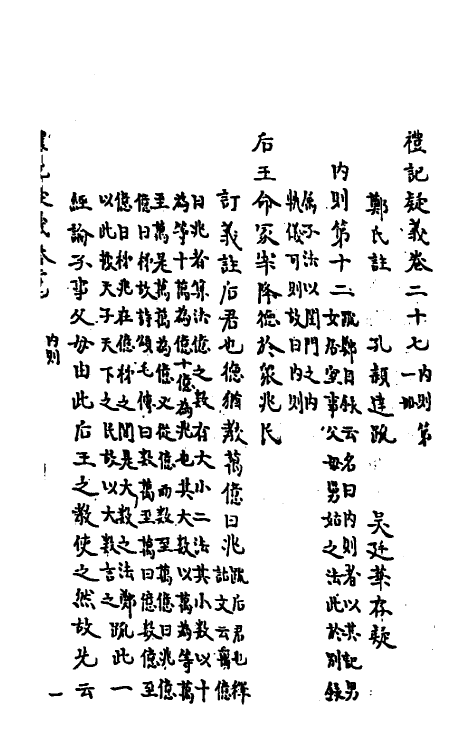 禮記疑義卷二十七 內則第一册
鄭氏註 孔穎達疏 吳廷華存疑
內則第十二 疏鄭目錄云名曰內則者以其記男
女居室事父母舅姑之法此於別錄
屬子法以閨門之內
軌儀可則故曰內則
后王命冢宰降德於眾兆民
訂義註后君也德猶教萬億曰兆 疏后君也釋
詁文云萬億
曰兆者算法億之數有大小二法其小數以十
為等十萬為億十億為兆也其大數以萬為等萬
至萬是萬萬為億又從億而數至萬億曰兆億
億曰秭故詩頌毛傳曰數萬至萬曰億數億至
億曰秭兆在億秭之間是大數之法鄭
以此據天子天下之民故以大數言之 疏此一
經論子事父母由此后王之教使之然故先云
內則
一